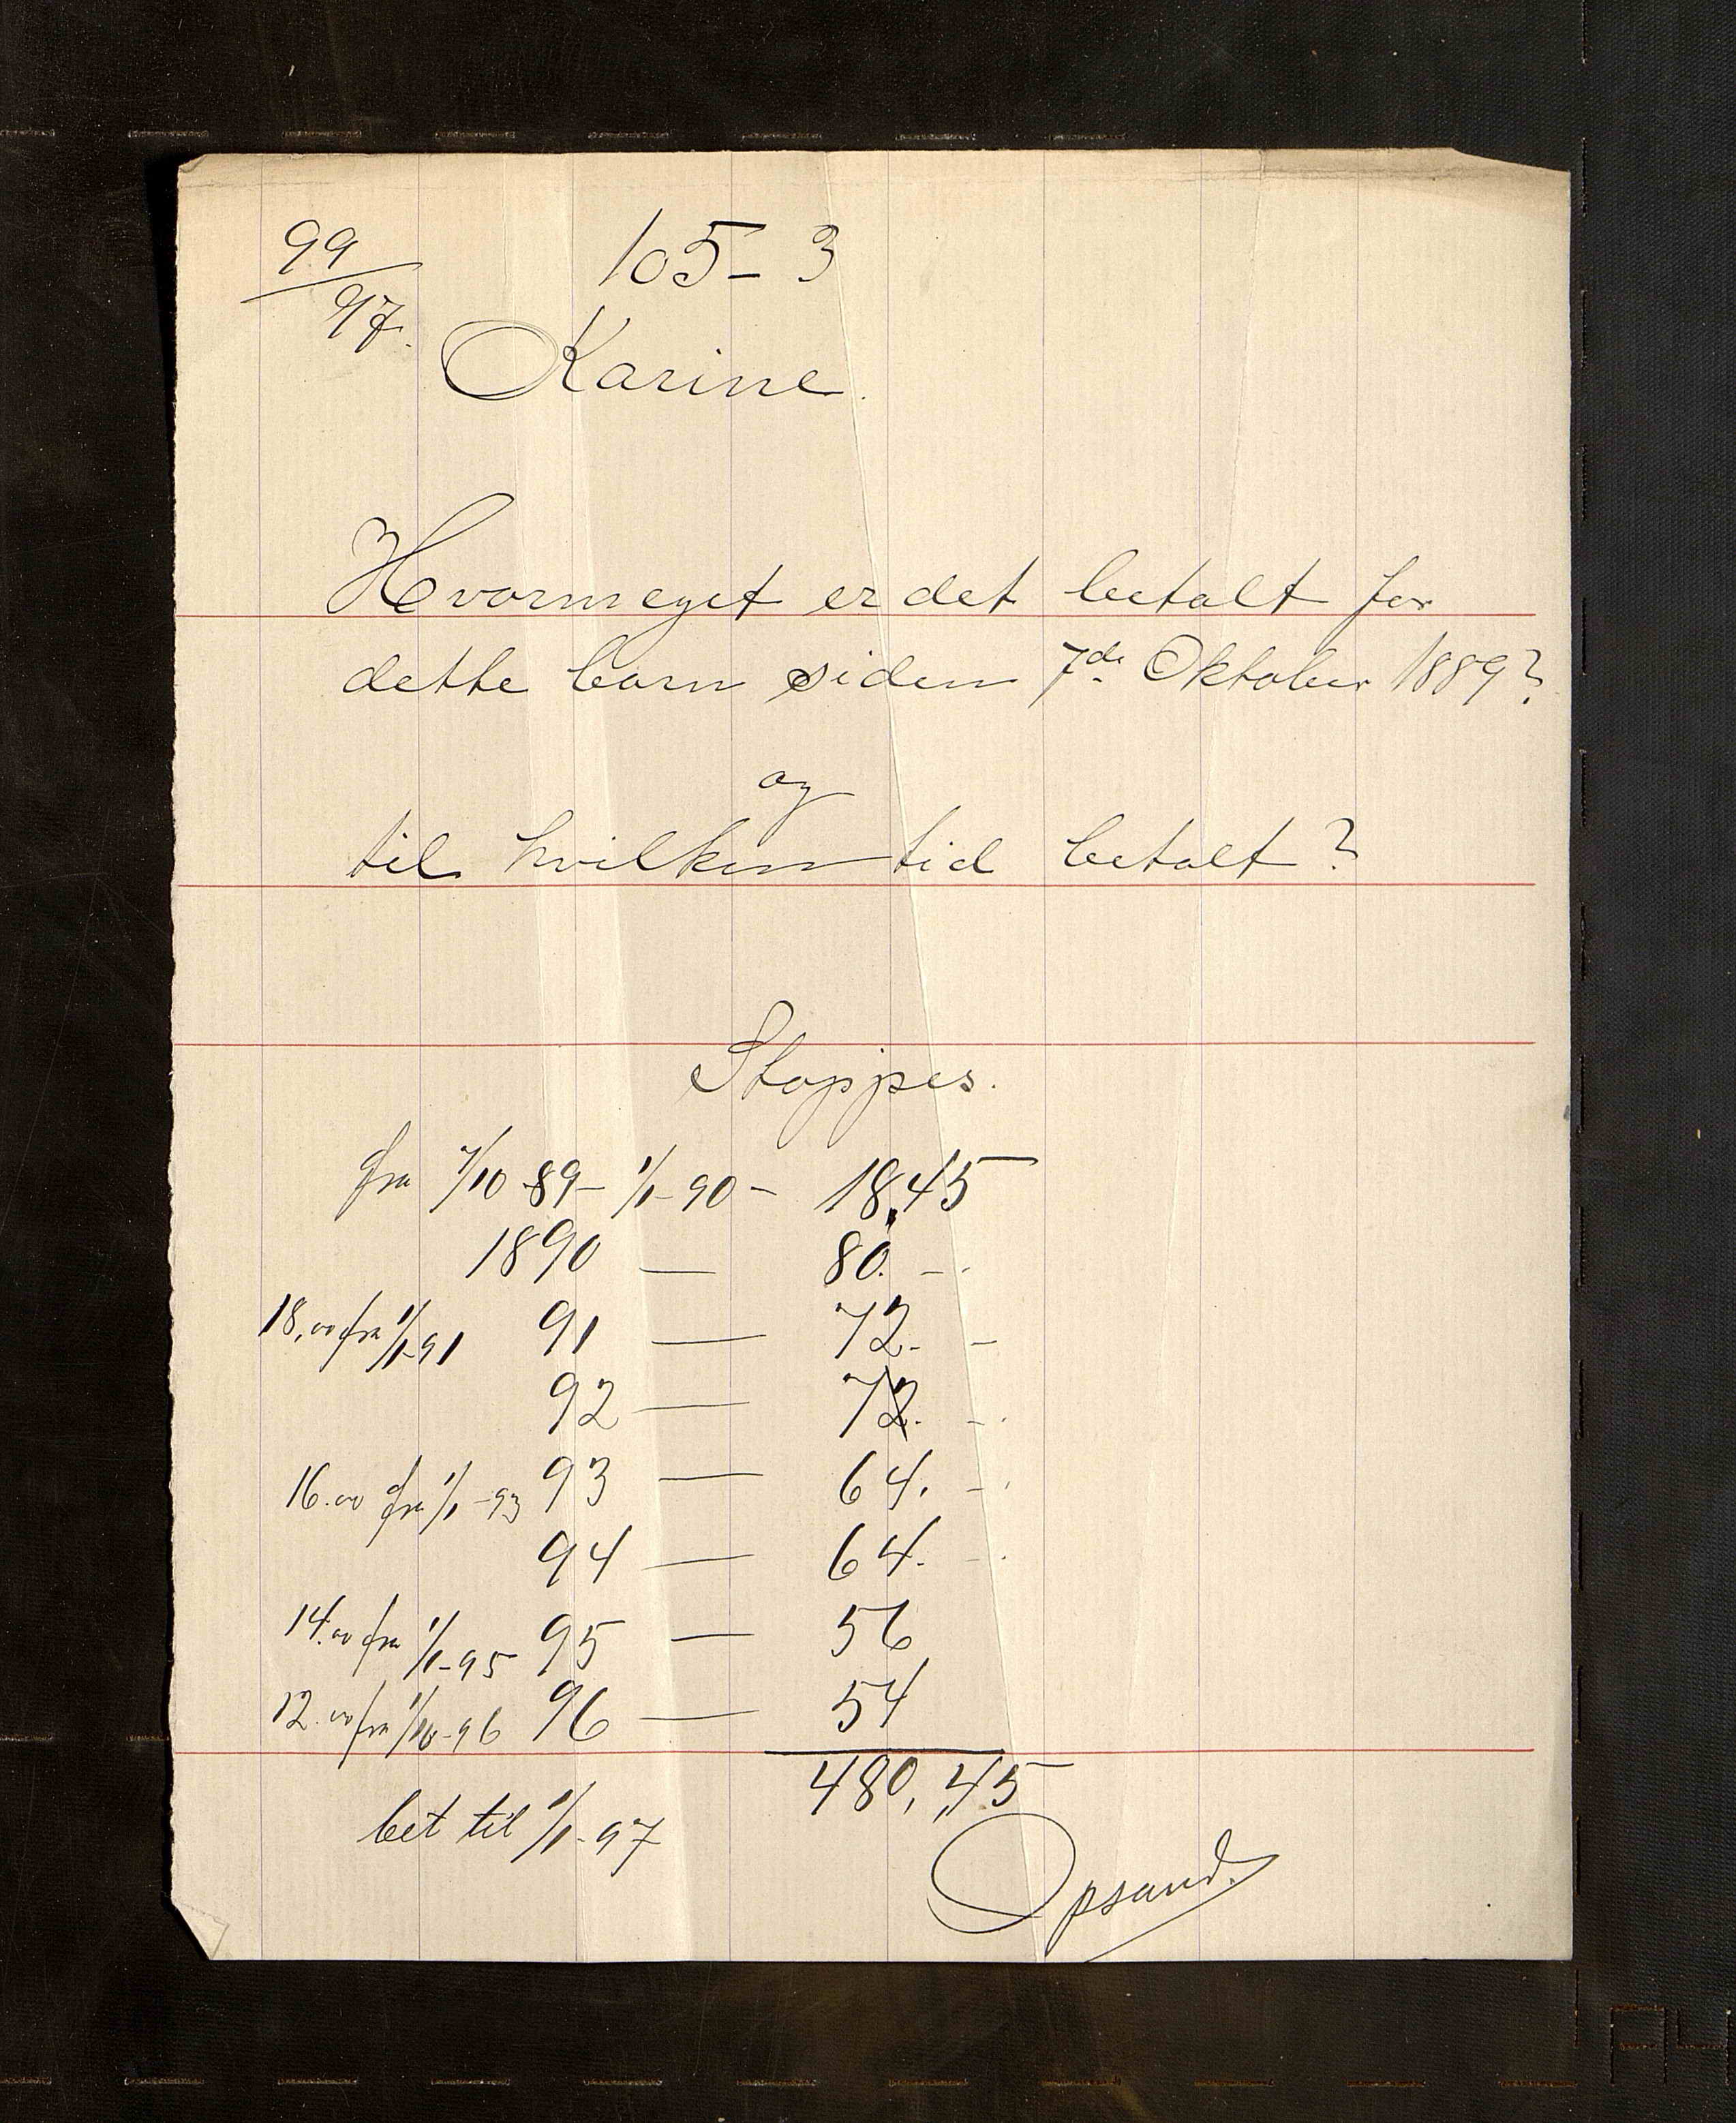 99/97.
105 - 3
Karine.
Hvormeget er det betalt for
dette barn siden 7de Oktober 1889?
og
til hvilken tid betalt?
Stoppes.
fra 7/10 - 89 - 1/1 - 90 - 18,45
1890 — 80. -.
18,00 fra 1/1-91 91 — 72. -
92 — 72. -.
16.00 fra 1/1-93 93 — 64. -.
94 — 64. -.
14.00 fra 1/1-95 95 — 56
12.00 fra 1/10-96 96 — 54
480,45
bet til 1/1-97
Opsand.